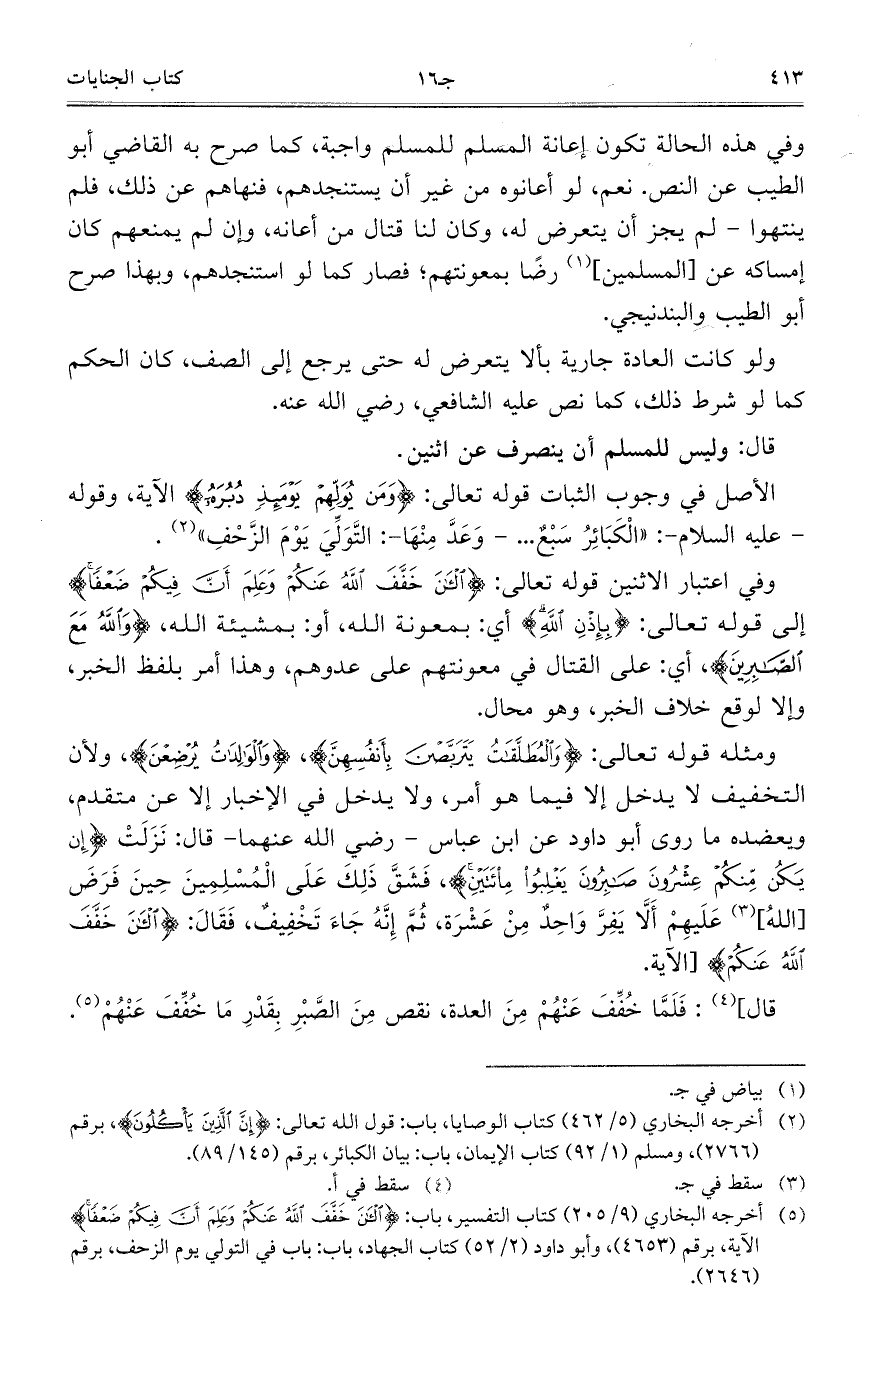 ٤١٣ جـ١٦ كتاب الجنايات
وفي هذه الحالة تكون إعانة المسلم للمسلم واجبة، كما صرح به القاضي أبو
الطيب عن النص. نعم، لو أعانوه من غير أن يستنجدهم، فنهاهم عن ذلك، فلم
ينتهوا – لم يجز أن يتعرض له، وكان لنا قتال من أعانه، وإن لم يمنعهم كان
إمساكه عن [المسلمين](١) رضًا بمعونتهم؛ فصار كما لو استنجدهم، وبهذا صرح
أبو الطيب والبندنيجي.
ولو كانت العادة جارية بألا يتعرض له حتى يرجع إلى الصف، كان الحكم
كما لو شرط ذلك، كما نص عليه الشافعي، رضي الله عنه.
قال: وليس للمسلم أن ينصرف عن اثنين.
الأصل في وجوب الثبات قوله تعالى: ﴿وَمَن يُوَلِّهِمْ يَوْمَئِذٍ دُبُرَهُ﴾ الآية، وقوله
– عليه السلام–: «الْكَبَائِرُ سَبْعٌ... – وَعَدَّ مِنْهَا–: التَّوَلِّيَ يَوْمَ الزَّحْفِ»(٢) .
وفي اعتبار الاثنين قوله تعالى: ﴿ٱلْـَٰٔنَ خَفَّفَ ٱللَّهُ عَنكُمْ وَعَلِمَ أَنَّ فِيكُمْ ضَعْفًا﴾
إلى قوله تعالى: ﴿بِإِذْنِ ٱللَّهِ﴾ أي: بمعونة الله، أو: بمشيئة الله، ﴿وَٱللَّهُ مَعَ
ٱلصَّـٰبِرِينَ﴾، أي: على القتال في معونتهم على عدوهم، وهذا أمر بلفظ الخبر،
وإلا لوقع خلاف الخبر، وهو محال.
ومثله قوله تعالى: ﴿وَٱلْمُطَلَّقَٰتُ يَتَرَبَّصْنَ بِأَنفُسِهِنَّ﴾، ﴿وَٱلْوَٰلِدَٰتُ يُرْضِعْنَ﴾، ولأن
التخفيف لا يدخل إلا فيما هو أمر، ولا يدخل في الإخبار إلا عن متقدم،
ويعضده ما روى أبو داود عن ابن عباس – رضي الله عنهما– قال: نَزَلَتْ ﴿إِن
يَكُن مِّنكُمْ عِشْرُونَ صَـٰبِرُونَ يَغْلِبُوا۟ مِا۟ئَتَيْنِ﴾، فَشَقَّ ذَلِكَ عَلَى الْمُسْلِمِينَ حِينَ فَرَضَ
[اللهُ](٣) عَلَيهِمْ أَلَّا يَفِرَّ وَاحِدٌ مِنْ عَشْرَة، ثُمَّ إِنَّهُ جَاءَ تَخْفِيفٌ، فَقَالَ: ﴿ٱلْـَٰٔنَ خَفَّفَ
ٱللَّهُ عَنكُمْ﴾ [الآية.
قال](٤) : فَلَمَّا خُفِّفَ عَنْهُمْ مِنَ العدة، نقص مِنَ الصَّبْرِ بِقَدْرِ مَا خُفِّفَ عَنْهُمْ(٥).
(١) بياض في جـ.
(٢) أخرجه البخاري (٥/ ٤٦٢) كتاب الوصايا، باب: قول الله تعالى: ﴿إِنَّ ٱلَّذِينَ يَأْكُلُونَ﴾، برقم
(٢٧٦٦)، ومسلم (١/ ٩٢) كتاب الإيمان، باب: بيان الكبائر، برقم (١٤٥/ ٨٩).
(٣) سقط في جـ. (٤) سقط في أ.
(٥) أخرجه البخاري (٩/ ٢٠٥) كتاب التفسير، باب: ﴿ٱلْـَٰٔنَ خَفَّفَ ٱللَّهُ عَنكُمْ وَعَلِمَ أَنَّ فِيكُمْ ضَعْفًا﴾
الآية، برقم (٤٦٥٣)، وأبو داود (٢/ ٥٢) كتاب الجهاد، باب: باب في التولي يوم الزحف، برقم
(٢٦٤٦).